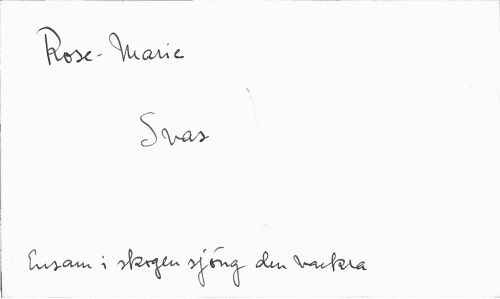 Rose-Marie
Svas
Ensam i skogen sjöng den vackra